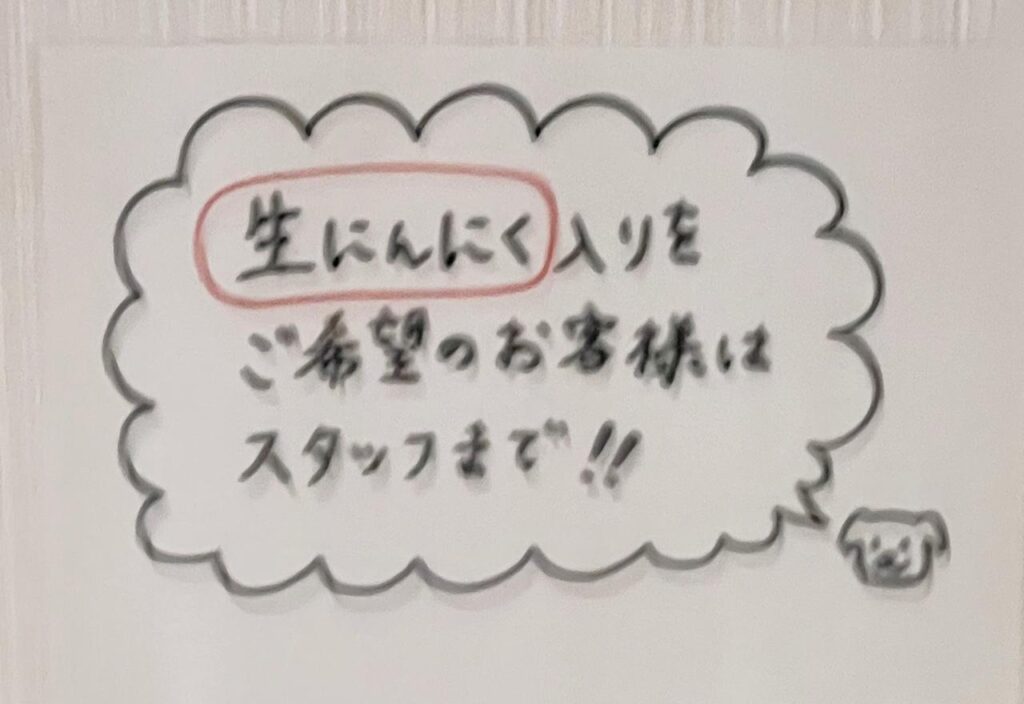 生にんにく入りを
ご希望のお客様は
スタッフまで!!